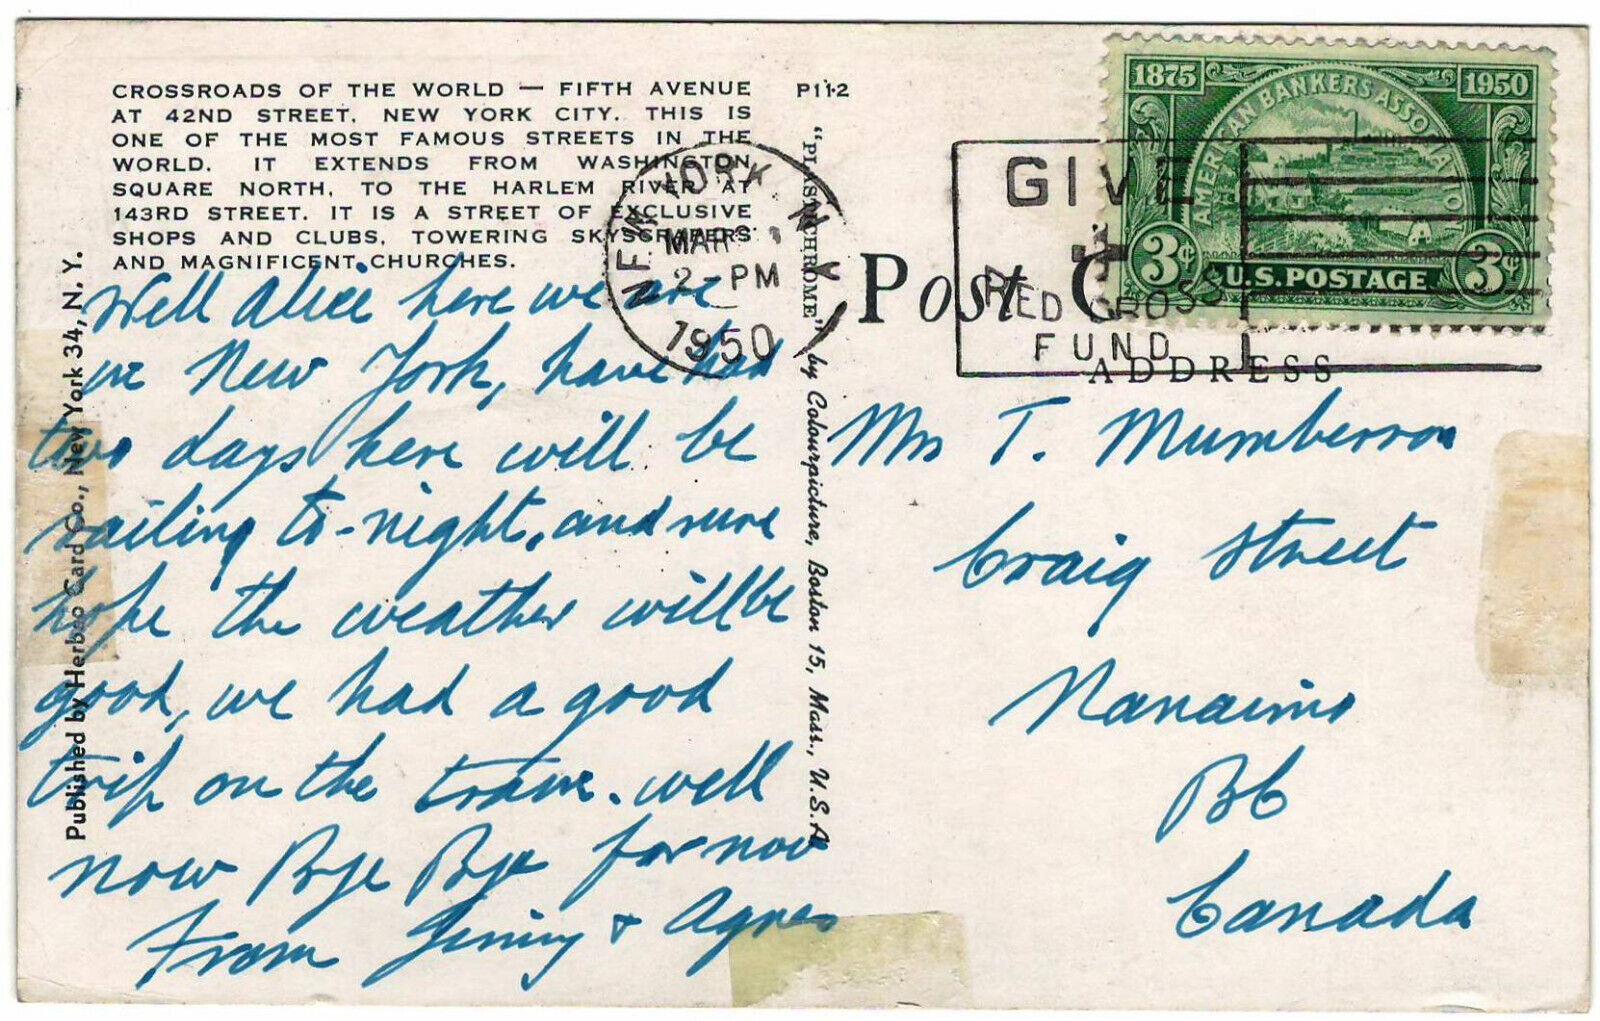 CROSSROADS OF THE WORLD — FIFTH AVENUE
AT 42ND STREET, NEW YORK CITY. THIS IS
ONE OF THE MOST FAMOUS STREETS IN THE
WORLD. IT EXTENDS FROM WASHINGTON
SQUARE NORTH, TO THE HARLEM RIVER AT
143RD STREET. IT IS A STREET OF EXCLUSIVE
SHOPS AND CLUBS, TOWERING SKYSCRAPERS
AND MAGNIFICENT CHURCHES.
P112
Published by Herbco Card Co., New York 34, N. Y.
"PLASTICHROME" by Colourpicture, Boston 15, Mass., U.S.A
Well Alice here we are
in New York, have had
two days here will be
sailing to-night, and sure
hope the weather will be
good, we had a good
trip on the train. well
now Bye Bye for now
From Jimmy + Agnes
NEW YORK N.Y.
MAR
2-PM
1950
GIVE
RED CROSS
FUND
1875 1950
AMERICAN BANKERS ASSOCIATION
3¢ 3¢
U.S. POSTAGE
Post
ADDRESS
Mrs T.
Craig Street
Nanaimo
BC
Canada